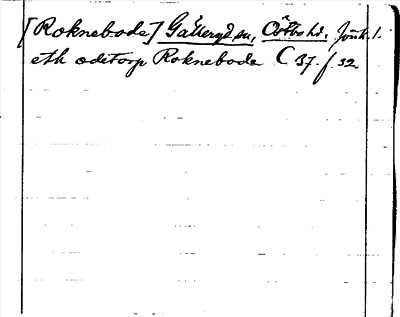 [Roknebode] Gällaryd sn, Östbo hd, Jönk. l.
eth ödetorp Roknebode C 37. f. 32.